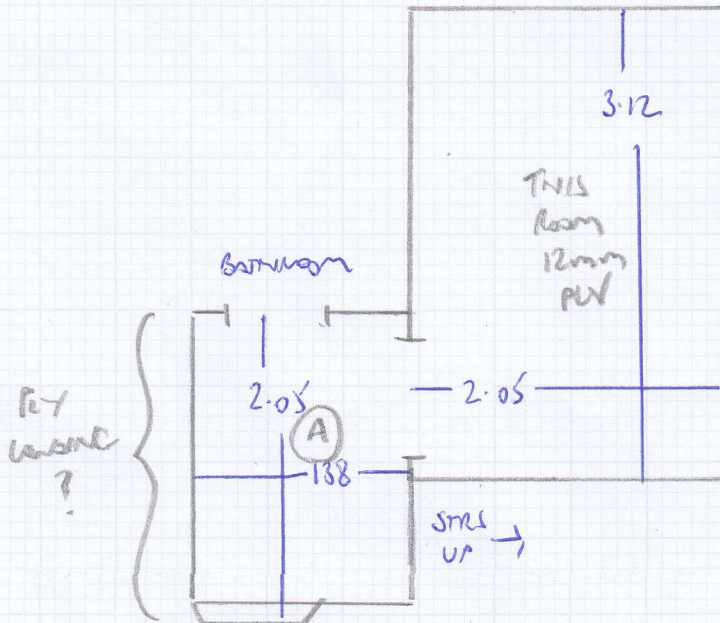 3.12
THIS
ROOM
12mm
PLY
BATHROOM
2.05
2.05
A
PLY
LANDING
?
138
STRS
UP →